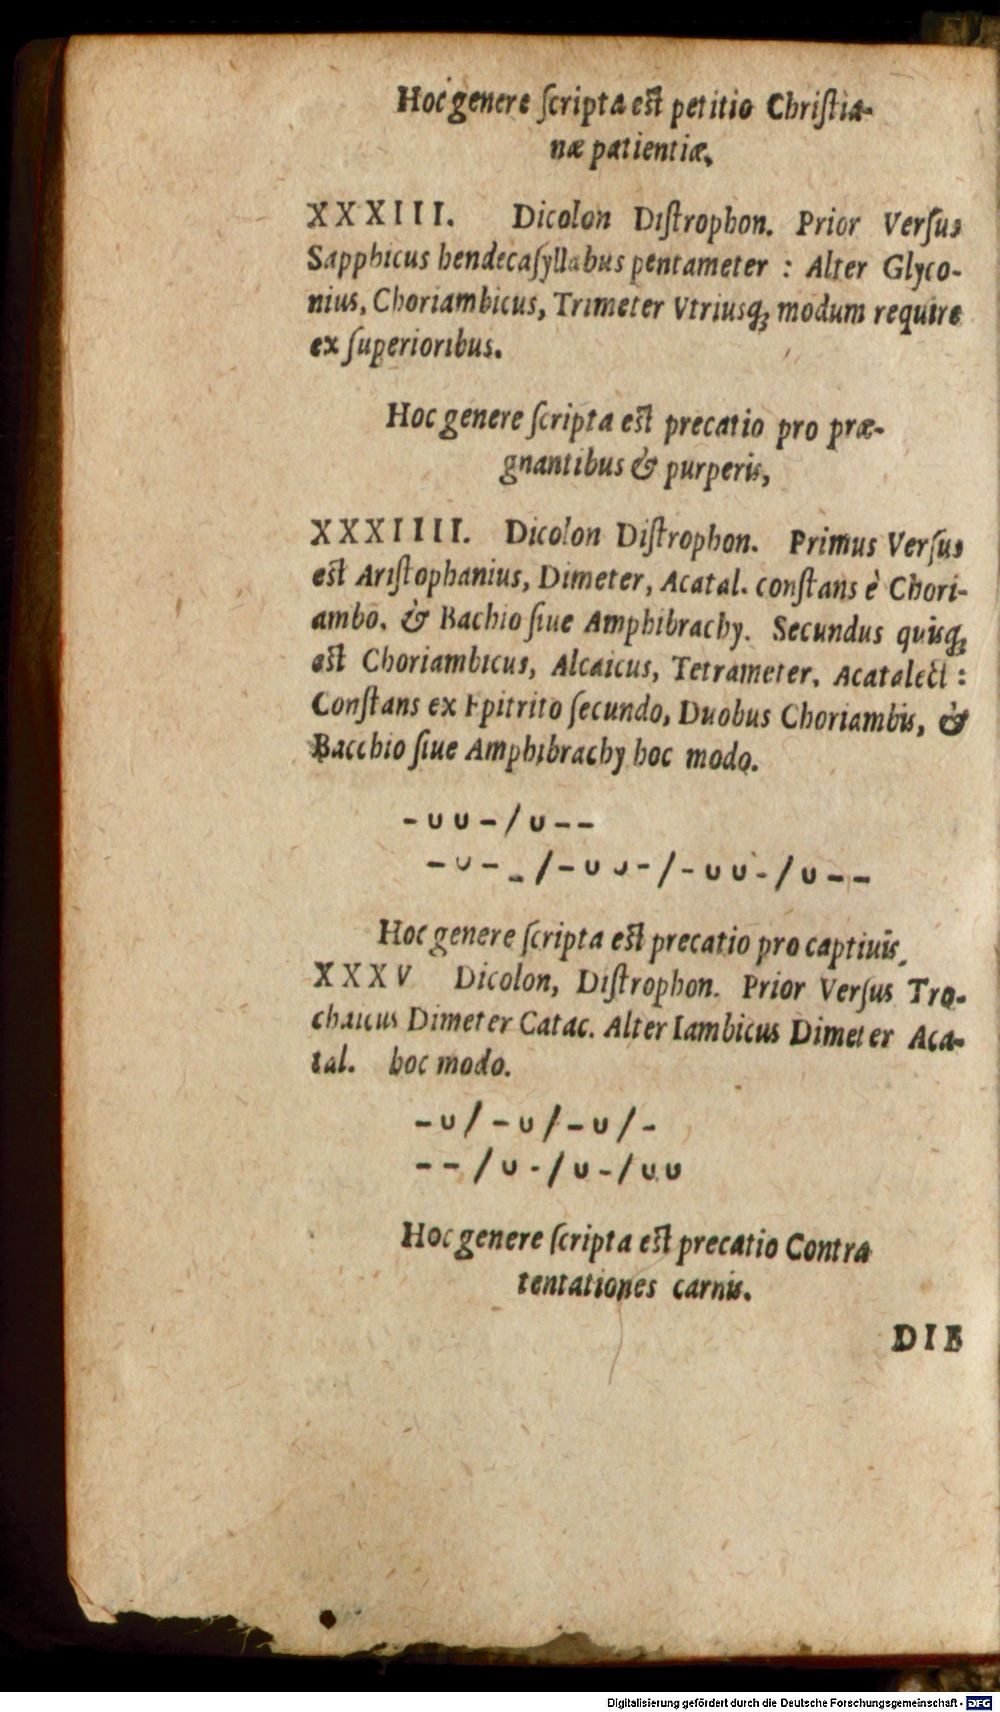 Hoc genere ſcripta eſt petitio Chriſtia-
næ patientiæ.
XXXIII. Dicolon Diſtrophon. Prior Verſus
Sapphicus hendecaſyllabus pentameter : Alter Glyco-
nius, Choriambicus, Trimeter Vtriusq; modum require
ex ſuperioribus.
Hoc genere ſcripta eſt precatio pro præ-
gnantibus & purperis,
XXXIIII. Dicolon Diſtrophon. Primus Verſus
eſt Ariſtophanius, Dimeter, Acatal. conſtans è Chori-
ambo. & Bachio ſiue Amphibrachy. Secundus quisq;
eſt Choriambicus, Alcaicus, Tetrameter, Acatalect :
Conſtans ex Epitrito ſecundo, Duobus Choriambis, &
Bacchio ſiue Amphibrachy hoc modo.
- u u - / u - -
- u - - / - u u - / - u u - / u - -
Hoc genere ſcripta eſt precatio pro captiuis.
XXXV Dicolon, Diſtrophon. Prior Verſus Tro-
chaicus Dimeter Catac. Alter Iambicus Dimeter Aca-
tal. hoc modo.
- u / - u / - u / -
- - / u - / u - / u u
Hoc genere ſcripta eſt precatio Contra
tentationes carnis.
DIE
Digitalisierung gefördert durch die Deutsche Forschungsgemeinschaft - DFG